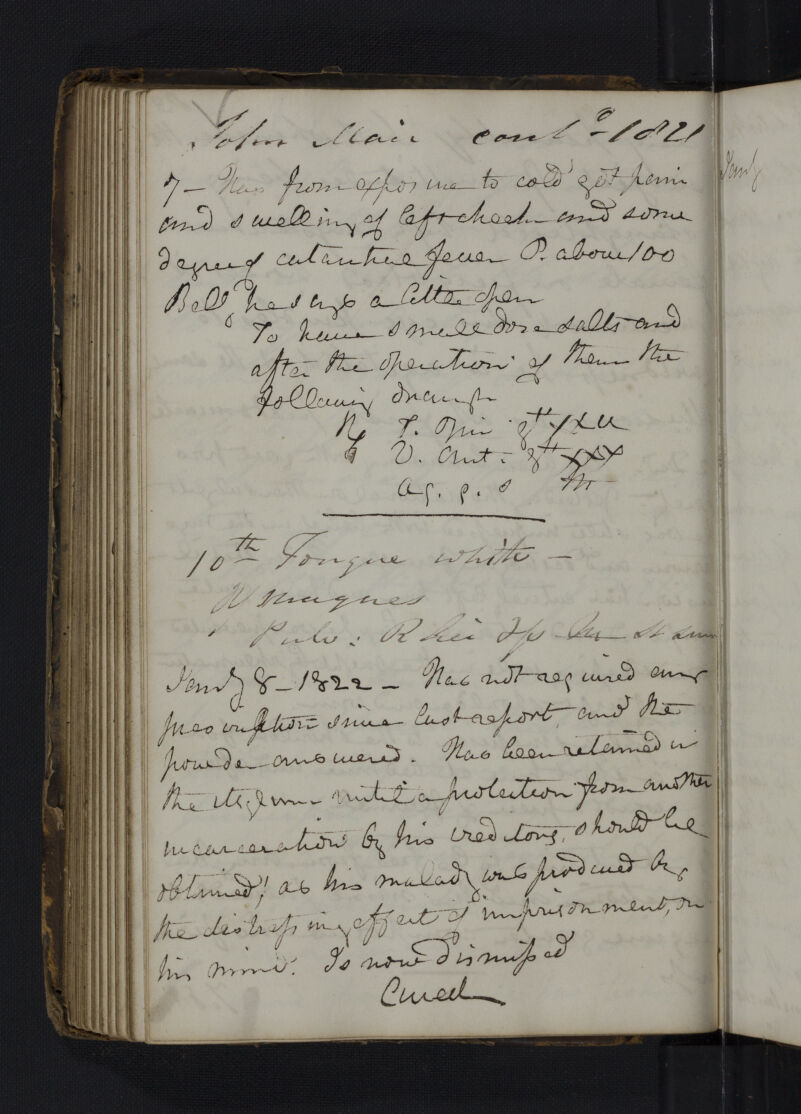 John Mair cont.d 1821
7 – Has from exposure to cold got pain
and swelling of left cheek and some
degree of catarrhal fever P. about 100
Belly he says a little open
To have small dose salts and
after the operation of them the
following draught
℞ T. Opii gtt
V. Ant. gtt xxx
aq. q. s
10th Tongue white –
Magnes
Pulv: Rhei
Jany 8 – 1822 – Has not required any
prescription since last report, and the
powder answered. Has been retained in
the asylum until a protection from another
incarceration by his creditors, should be
obtained, as his malady was produced by
the distressing effect of imprisonment, on
his mind. Is now dismissed
Cured
Jany